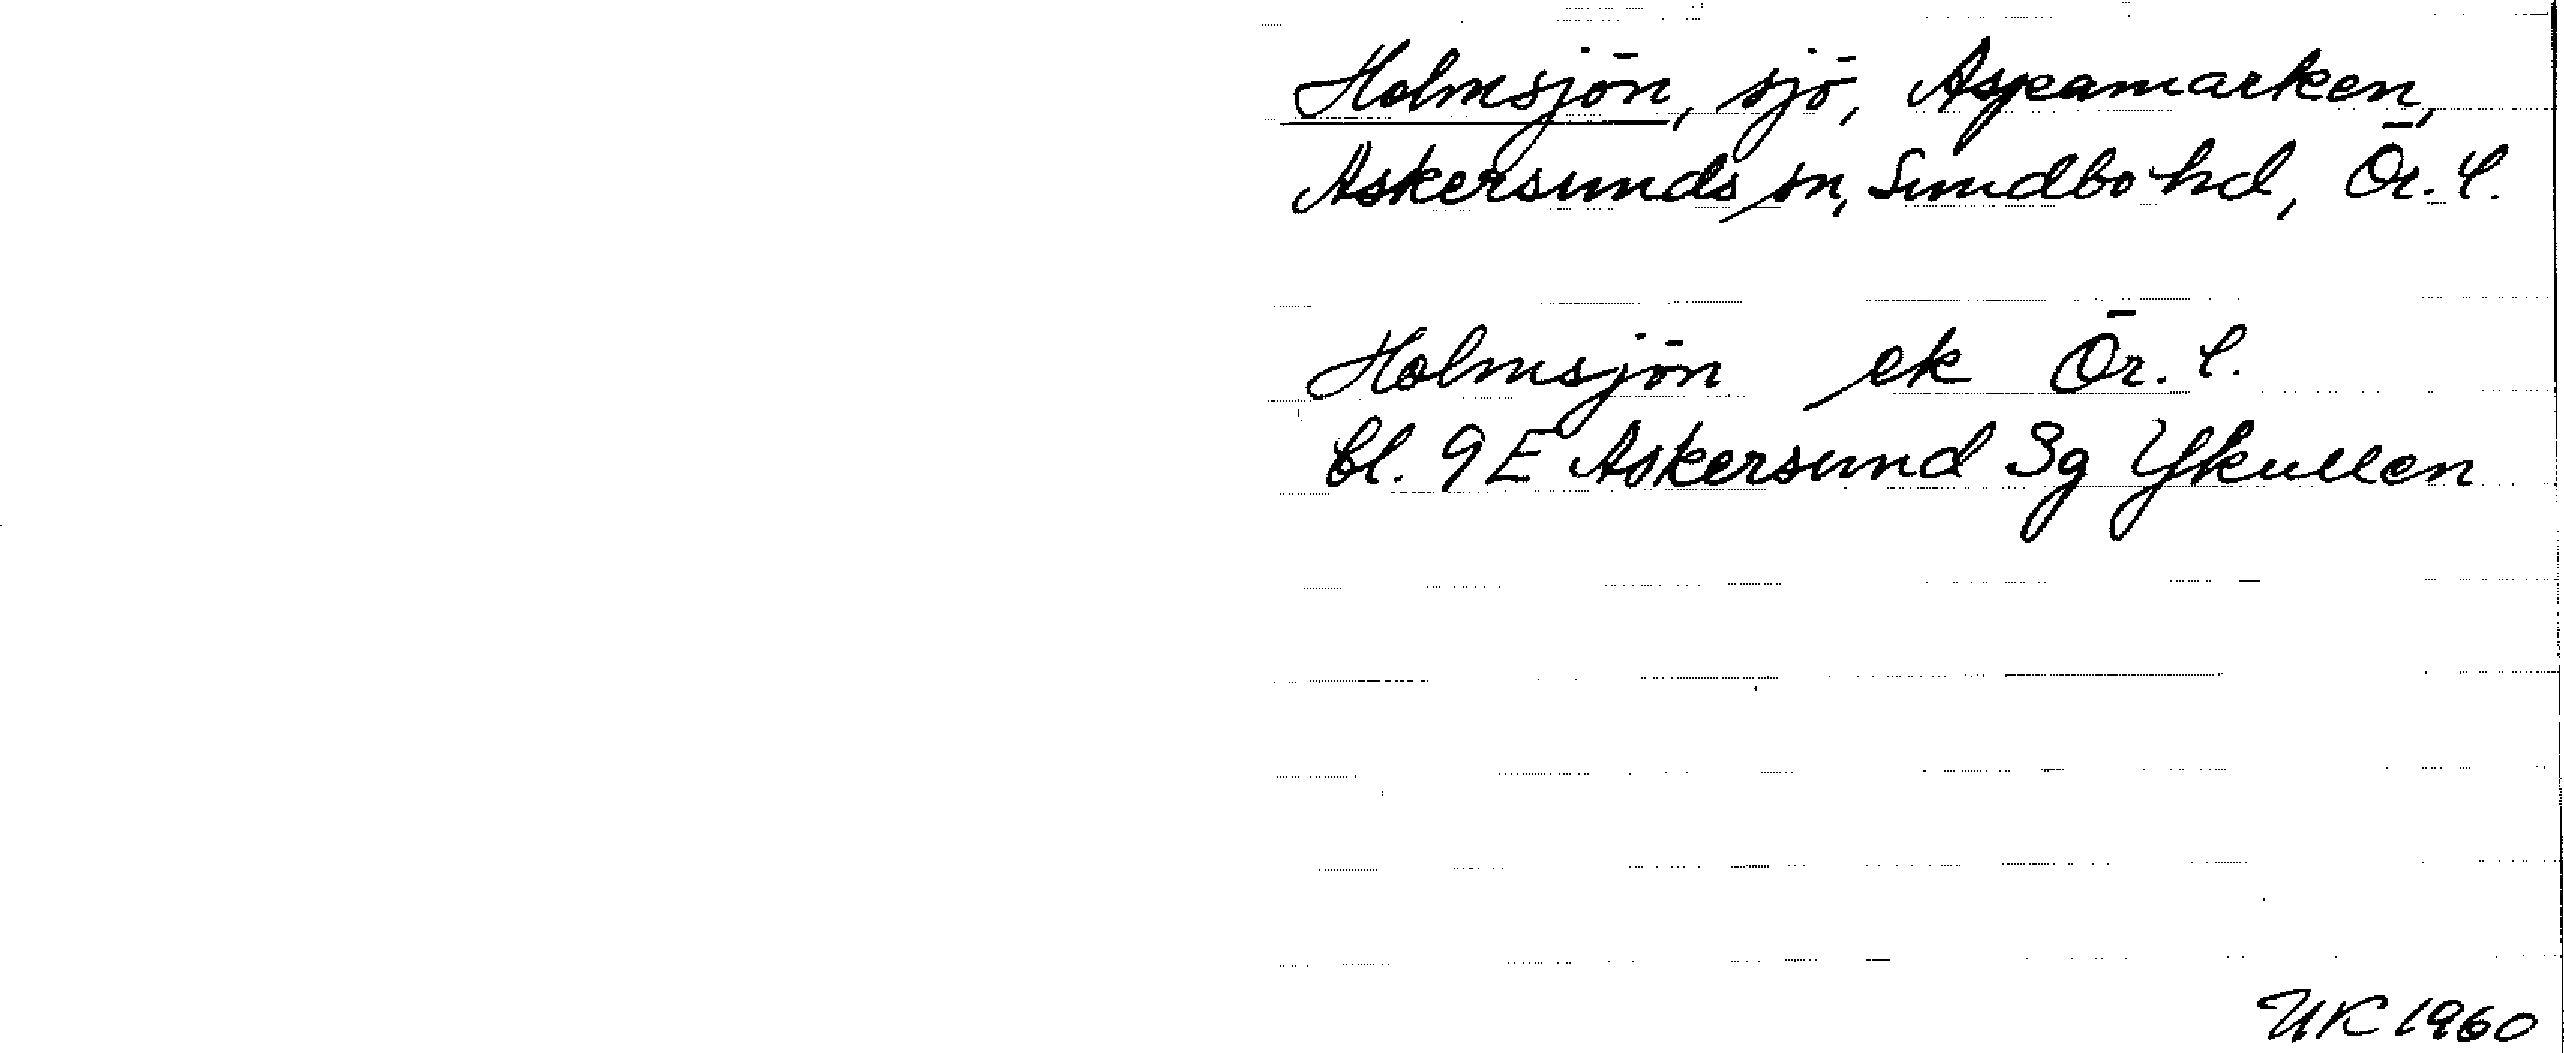 Holmsjön, sjö, Aspamarken,
Askersunds sn, Sundbo hd, Ör. l.
Holmsjön ek Ör. l.
bl. 9E Askersund 3g Ykullen
UK 1960